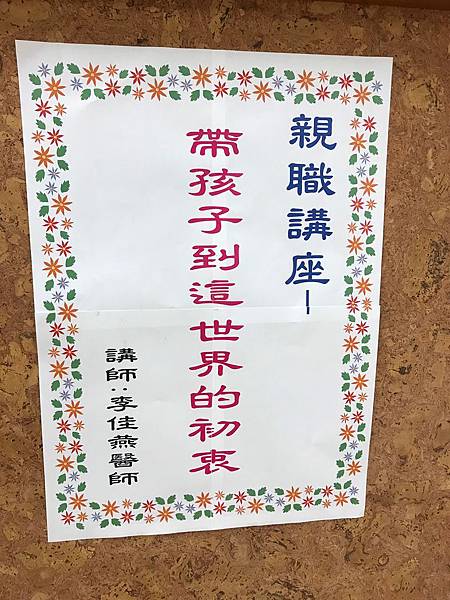 親職講座－
帶孩子到這世界的初衷
講師：李佳燕醫師